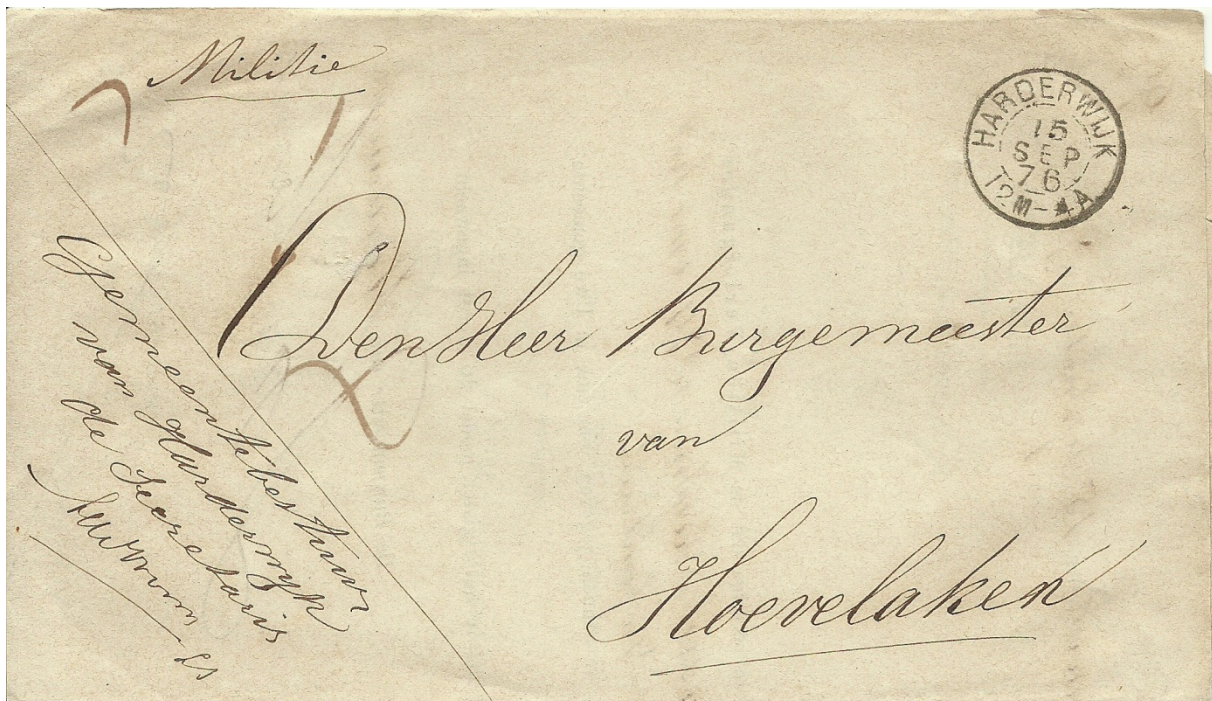 Militie
HARDERWIJK
15
SEP
76
12M-4A
Den Heer Burgemeester
van
Hoevelaken
Gemeentebestuur
van Harderwijk
de Secretaris